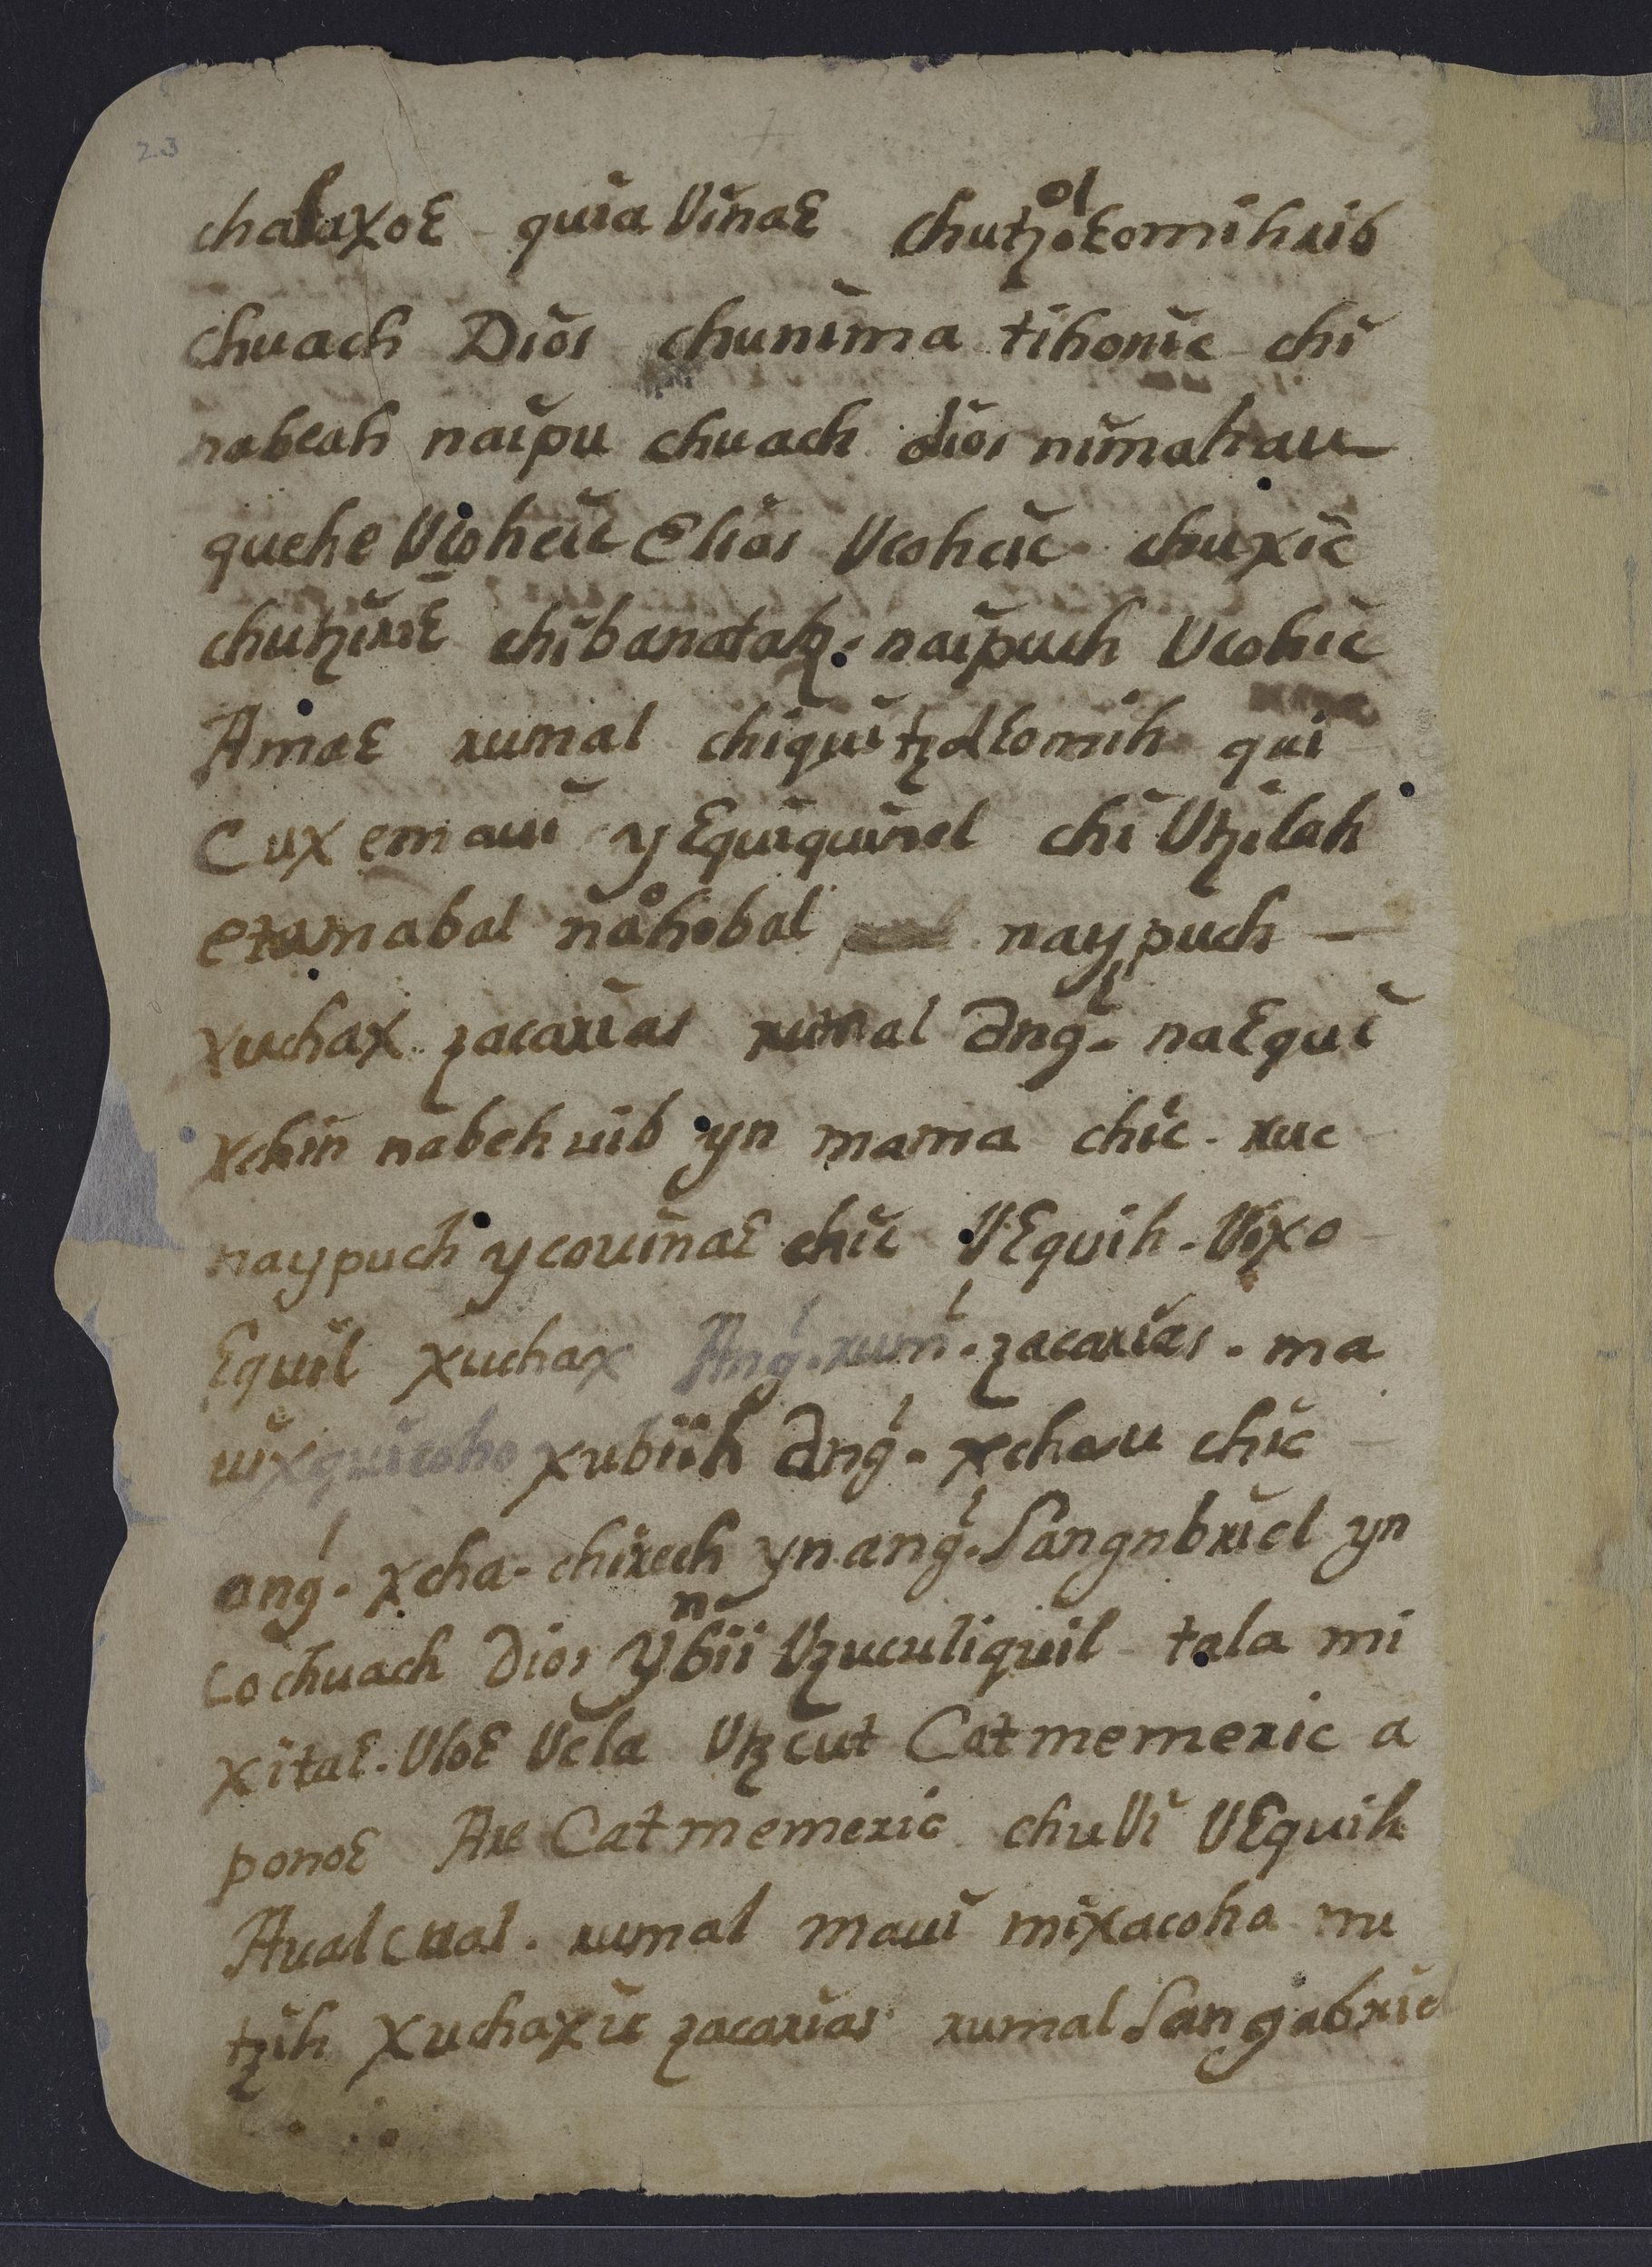 23
chalaxoɛ quia Vinaɛ chutzolɛomihrib
chuach Dios chunima tihonic chi
nabeah naipu chuach dios nimahau
quehe Vcoheic Elias Vcoheic chuxic
chutziriɛ chibanatah. naipuch Vcohic
Amaɛ rumal chiquitzolɛomih qui
Cux emaui yɛquiquinel chi Vtzilah
etamabal nahobal naypuch
xuchax zacarias rumal angl. naɛqui
xchin nabeh uib yn mama chic. ruc
naypuch ycouinaɛ chic Vɛquih. Vixo
ɛquil xuchax Angl. ruml. zacarias. ma
uixquicoho xubiih angl. xchau chic
angl. xcha. chirech yn angl. Sangabriel yn
co chuach Dios ynbii Vzuculiquil tala mi
xitaɛ. Vloɛ Vcla Vtzcut Catmemeric a
ponoɛ Are Catmemeric chuVi Vɛquih
Aualcual. rumal maui mixacoha nu
tzih xuchaxic zacarias rumal Sangabriel